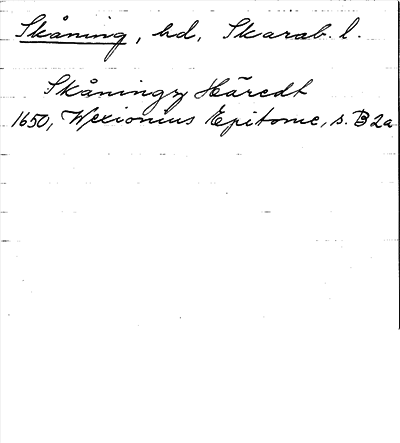 Skåning, hd, Skarab. l.
Skåningz Häredt
1650, Wexionius Epitome, s. B 2a